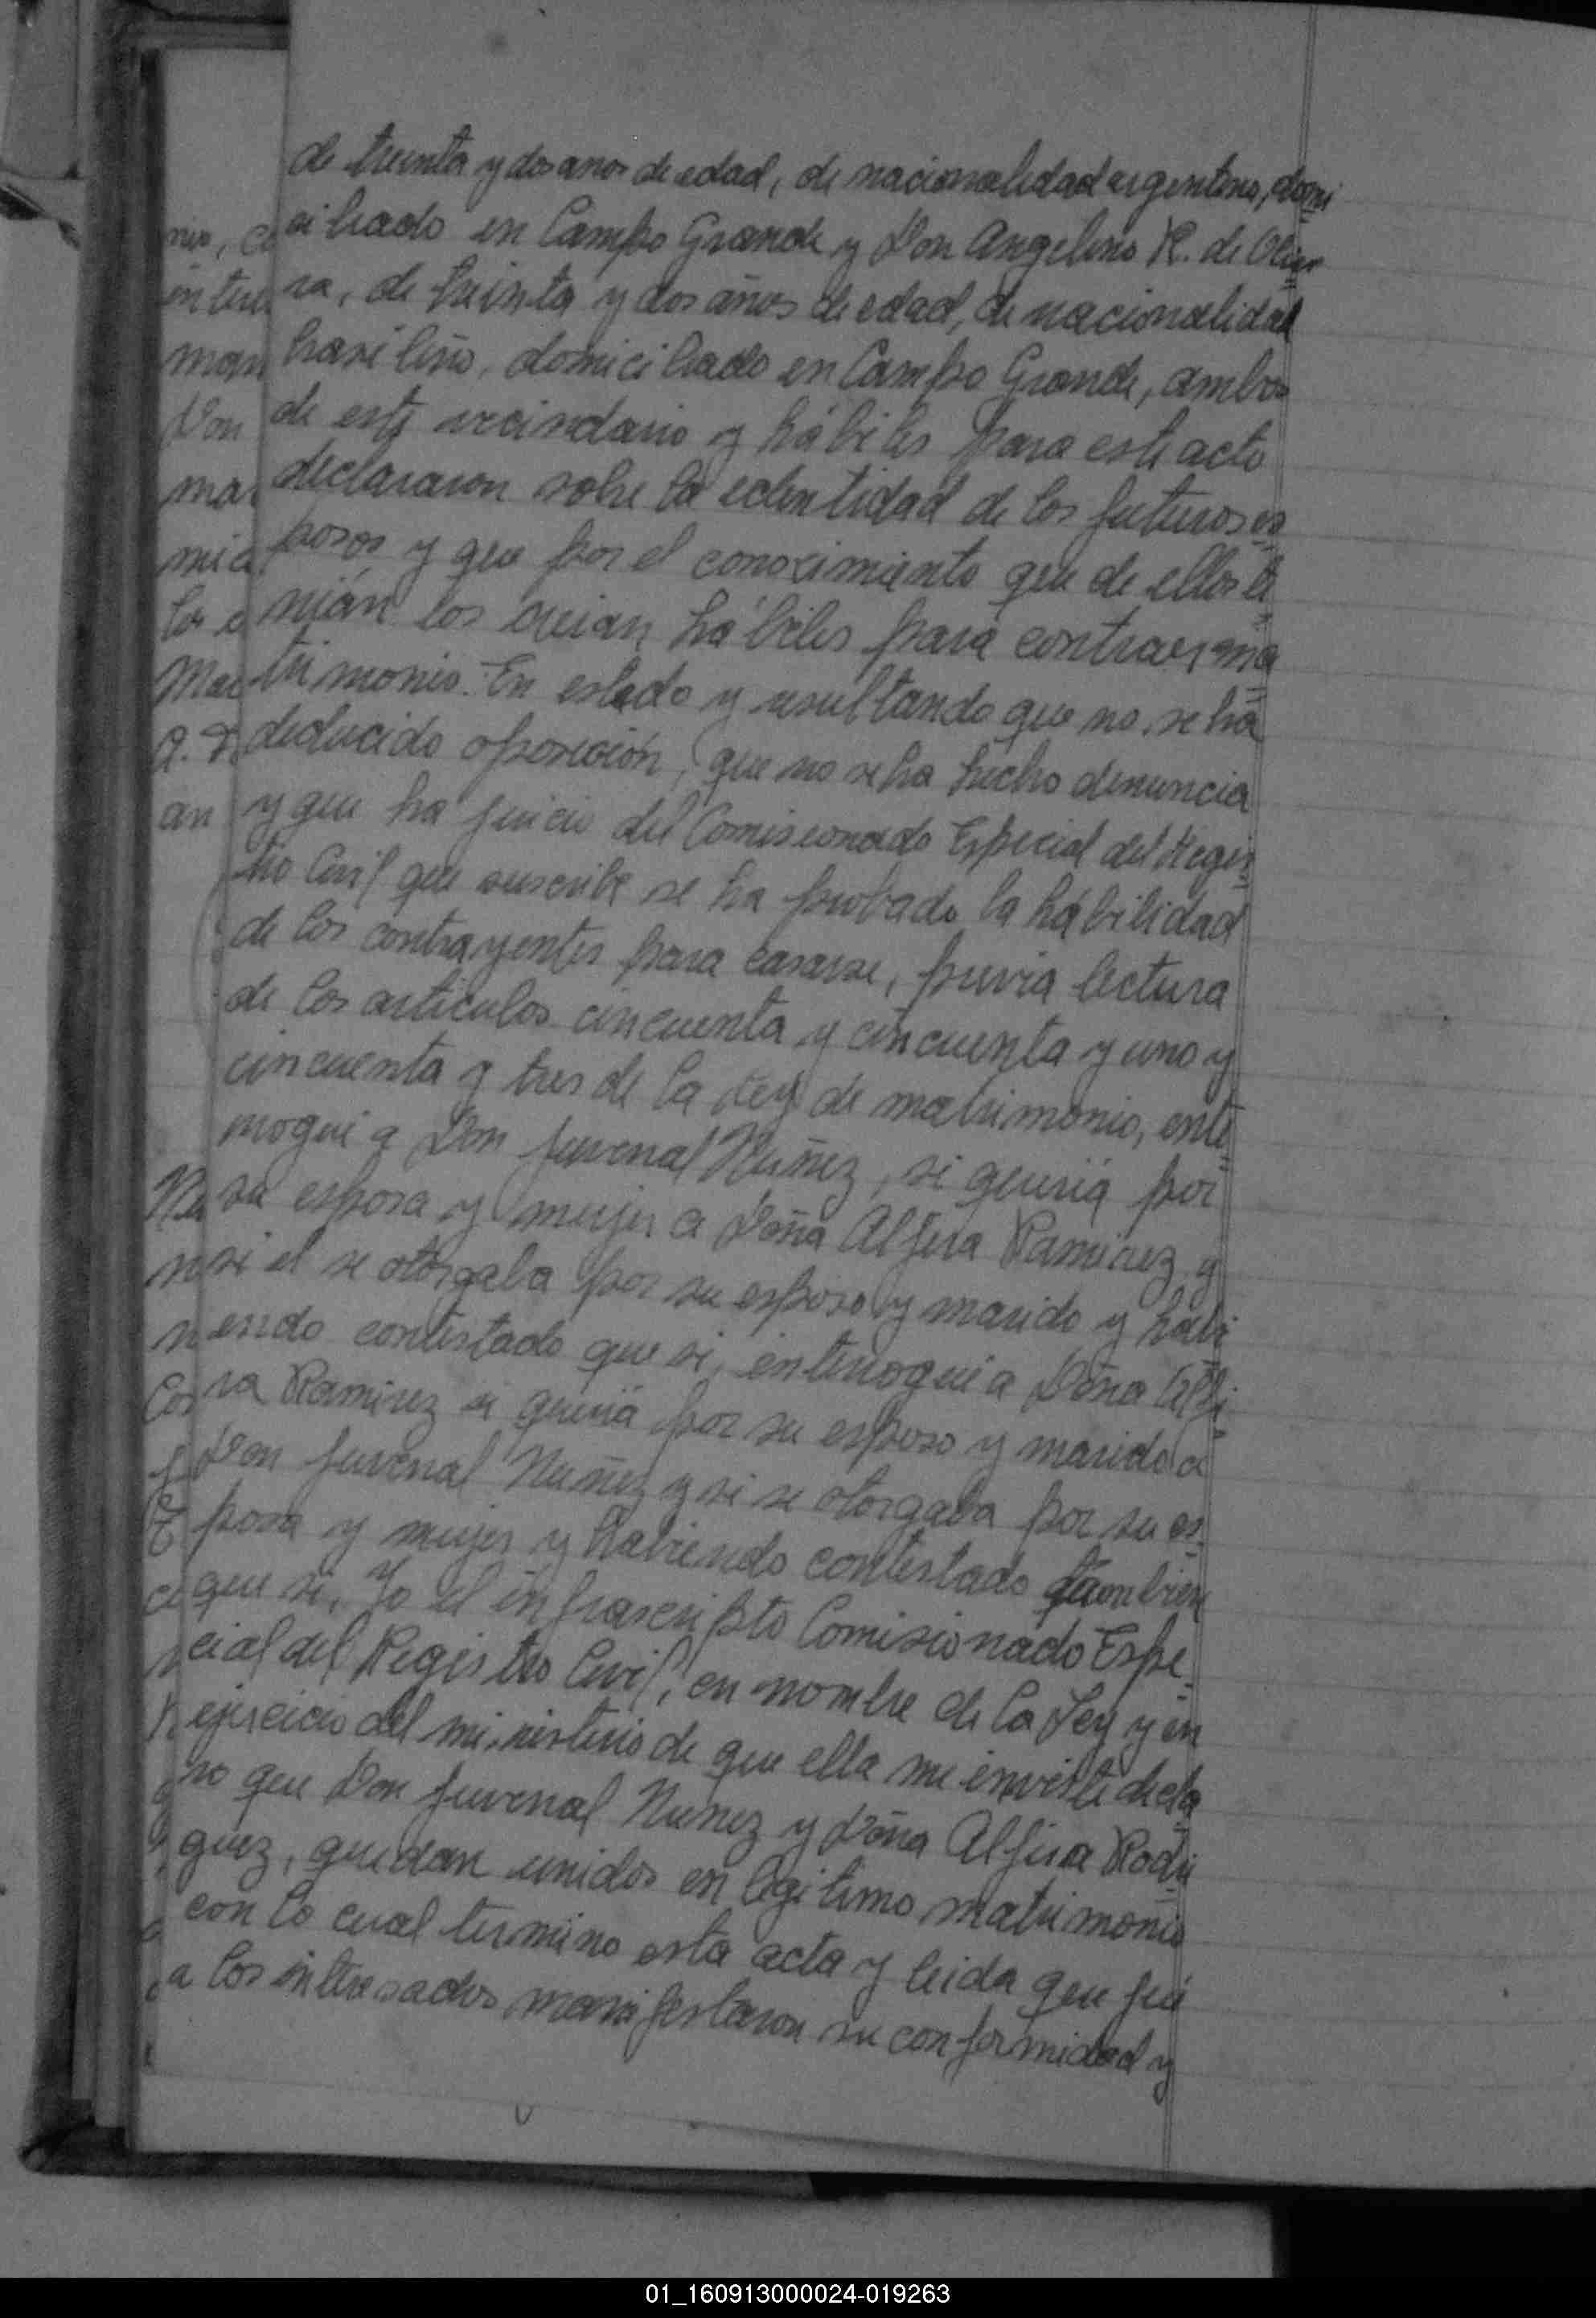 de treinta y dos años de edad, de nacionalidad argentino, domi
ciliado en Campo Grande y Don Angelino R. de Olivei
ra, de treinta y dos años de edad, de nacionalidad
brasileño, domiciliado en Campo Grande, ambos
de este vecindario y hábiles para este acto
declararon sobre la edentidad de los futuros es
posos y que por el conocimiento que de ellos te
nián los creian hábiles para contraer ma
trimonio. En estado y resultando que no se ha
deducido oposición, que no se ha hecho denuncia
y que ha juicio del Comisionado Especial del Regis
tro Civil que suscribe se ha probado la hábilidad
de los contrayentes para casarse, previa lectura
de los articulos cincuenta y cincuenta y uno y
cincuenta y tres de la Ley de matrimonio, inte
rrogué a Don Juvenal Nuñez, si queriá por
su esposa y mujer a Doña Alfira Ramirez y
si el se otorgaba por su esposo y marido y habi
endo contestado que si, interrogué a Doña Alfi
ra Ramirez si queriá por su esposo y marido a
Don Juvenal Nuñez y si se otorgaba por su es
posa y mujer y habiendo contestado tambien
que si, Yo el infrascripto Comisionado Espe
cial del Registro Civil, en nombre de la Ley y en
ejercicio del ministerio de que ella me enviste decla
ro que Don Juvenal Nuñez y Doña Alfira Rodri
guez, quedan unidos en legitimo matrimonio
con lo cual termino esta acta y leida que fué
a los intresados manifestaron su conformidad y
01_160913000024-019263